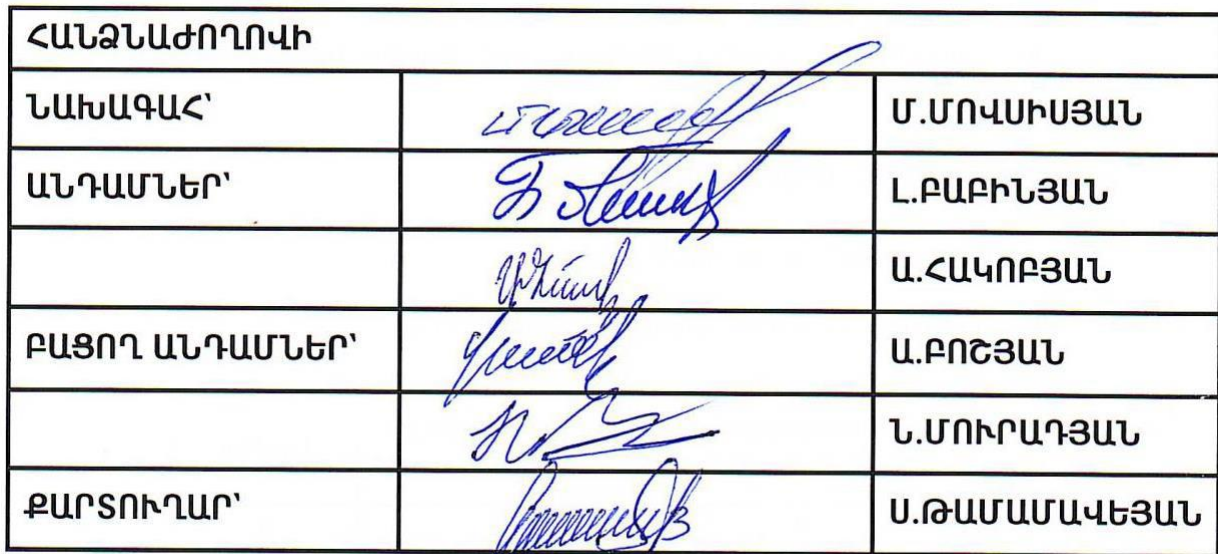 ՀԱՆՁՆԱԺՈՂՈՎԻ
ՆԱԽԱԳԱՀ՝ Մ.ՄՈՎՍԻՍՅԱՆ
ԱՆԴԱՄՆԵՐ՝ Լ.ԲԱԲԻՆՅԱՆ
Ա.ՀԱԿՈԲՅԱՆ
ԲԱՑՈՂ ԱՆԴԱՄՆԵՐ՝ Ա.ԲՈՇՅԱՆ
Ն.ՄՈՒՐԱԴՅԱՆ
ՔԱՐՏՈՒՂԱՐ՝ Ս.ԹԱՄԱՄԱՎԵՅԱՆ